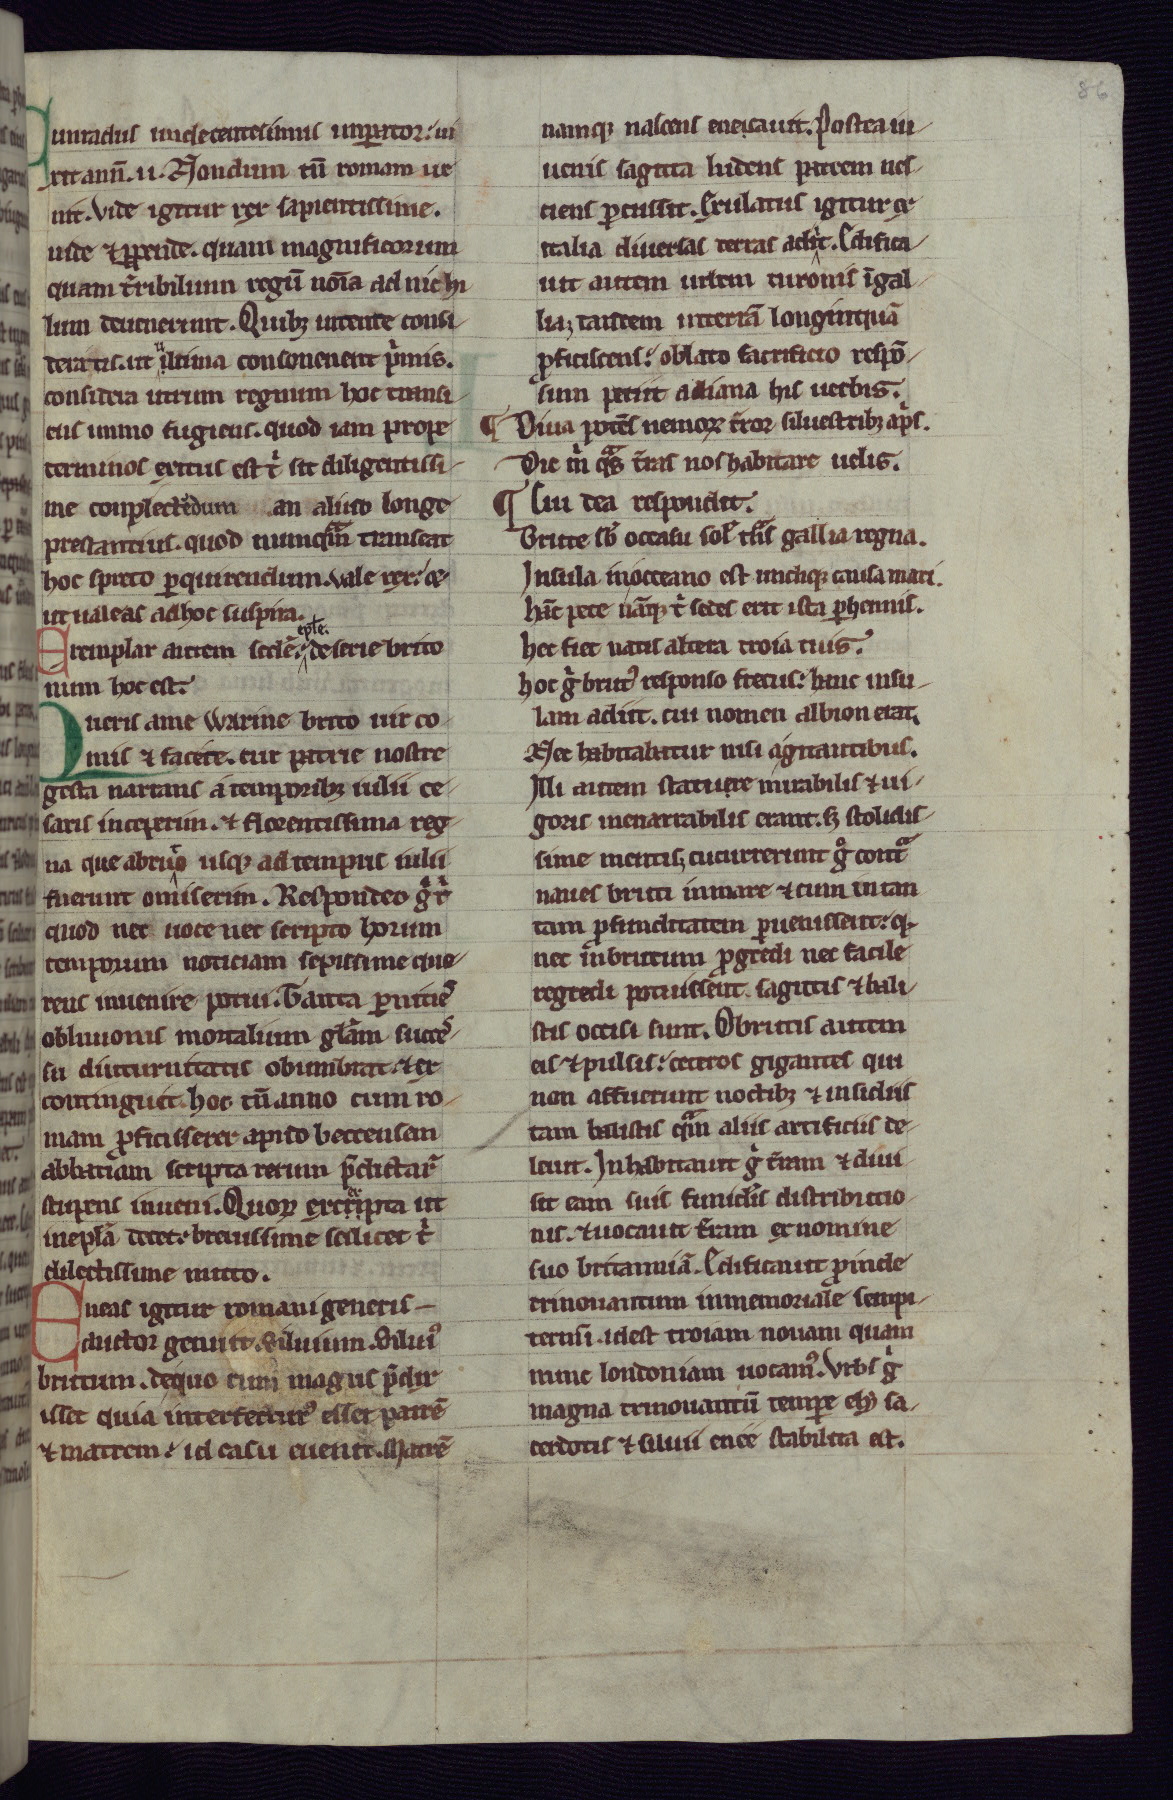 86
Cunradus undecentesimus imꝑator: ui
xit ann̄. ii. Nondum tn̄ romam ue
nit. Vide igitur rex sapientissime.
uide ⁊ ꝑpende. quam magnificorum
quam t̄ribilium regū noīa ad nichi
lum deuenerunt. Quibꝫ intente consi
deratis. ut ultima consonent p̄mis.
considera utrum regnum hoc transi
ens immo fugiens. quod iam prope
terminos exitus est t͛ sit diligentissi
me complectēdum an aliud longe
prestantius. quod numq̄m transeat
hoc spreto ꝑquirendum. Vale rex: ⁊
ut ualeas ad hoc suspira.
Exemplar autem scd̄e epl̄e. de serie brito
num hoc est:
Queris a me Warine brito uir co
mis ⁊ facete. cur patrie nostre
gesta narrans a temporibꝫ iulii ce
saris inceperim. ⁊ florentissima reg
na que a bruto usqꝫ ad tempus iulii
fuerunt omiserim. Respondeo g̊ t͛
quod nec uoce nec scripto horum
temporum noticiam sepissime que
rens inuenire potui. Tanta ꝑnities
obliuionis mortalium gl̄am succes
su diuturnitatis obumbrat. ⁊ ex
tinguit. hoc tn̄ anno cum ro
mam ꝓficisserer apud beccensem
abbatiam scripta rerum p̄dictar̄
stupens inueni. Quoꝝ excerpta ut
in epl̄a decet: breuissime scilicet t͛
dilectissime mitto.
Eneas igitur romani generis
auctor genuit siluium. Siluiꝰ
brutum. de quo cum magus p̄dix
isset quia interfecturꝰ esset patrē
⁊ matrem: id casu euenit. Matrē
namqꝫ nascens enecauit. Postea iu
uenis sagitta ludens patrem nes
ciens ꝑcussit. Exulatus igitur ex
italia diuersas terras adiit. Edifica
uit autem urbem turonis ī gal
lia; tandem in terrā longinquā
ꝓficiscens: oblato sacrificio respō
sum petiit a diana his uerbis.
¶ Diua potēs nemoꝝ t̄ror siluestribꝫ ap̄s.
Dic m͛ q̄s t̄ras nos habitare uelis.
¶ Cui dea respondit.
Brute sb̄ occasu sol̄ t̄ns gallia regna.
Insula in occeano est undiqꝫ clausa mari.
hāc pete nāqꝫ t͛ sedes erit ista ꝑhennis.
hec fiet natis altera troia tuis.
hoc g̊ brutꝰ responso fretus: hanc insu
lam adiit. cui nomen albion erat.
Nec habitabatur nisi a gigantibus.
Illi autem stature mirabilis ⁊ ui
goris inenarrabilis erant. sꝫ stolidis
sime mentis; cucurrerunt g̊ contᵃ
naues bruti in mare ⁊ cum in tan
tam ꝓfunditatem ꝑuenissent: qd̄
nec in brutum ꝓgredi nec facile
regredi potuissent. sagittis ⁊ bali
stis occisi sunt. Obrutis autem
eis ⁊ pulsis: ceteros gigantes qui
non affuerunt noctibꝫ ⁊ insidiis
tam balistis q̄m aliis artificiis de
leuit. Inhabitauit g̊ t̄ram ⁊ diui
sit eam suis funicl̄is distributio
nis. ⁊ uocauit t̄ram ex nomine
suo britanniā. Edificauit ꝓinde
trinouantum in memoriale sempi
ternū. id est troiam nouam quam
nunc londoniam uocamꝰ. Vrbs g̊
magna trinouantū tempore ely sa
cerdotis ⁊ siluii enee stabilita est.